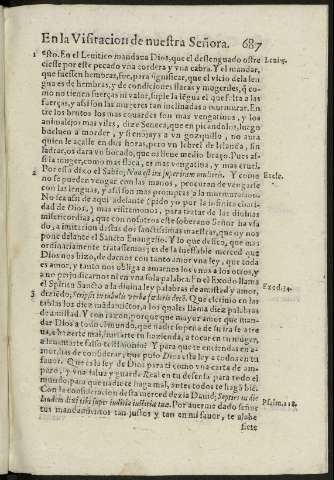 En la Visitacion de nuestra Señora. 687
1 esto. En el Leuitico mandaua Dios, que el deslenguado ofre Leuit.
ciesse por este pecado vna cordera y vna cabra. Y el mandar,
que fuessen hembras, fue, para significar, que el vicio de la len
gua es de hembras, y de condiciones flacas y mugeriles, que co
mo no tienen fuerças ni valor, suple la légua el que falta a las
fuerças, y assi son las mugeres tan inclinadas a murmurar. En
tre los brutos los mas couardes son mas vengatiuos, y los
animalejos mas viles, dize Seneca, que en picandolos, luego
bueluen a morder, y si enojays a vn gozquillo, no aura
quien le acalle en dos horas, pero vn lebrel de Irlanda, sin
ladrar, os dara vn bocado, que os lleue medio braço. Pues as-
si la muger, como mas flaca, es mas vengatiua, y mas cruel.
2 Por esso dixo el Sabio, Non est ira super iram mulieris. Y como Eccle.
no se pueden vengar con las manos, procuran de vengarse
con las lenguas, y assi son mas promptas a la murmuracion.
No sea assi de aqui adelante pido yo por la infinita charidad
de Dios, y mas exitemonos, para tratar de las diuinas
misericordias, que con nosotros este soberano Señor ha vsa
do, a imitacion destas dos sanctissimas maestras, que oy nos
pone delante el Sancto Euangelio. Y lo que desseo, que mas
ordinariamente tratassemos; es de la inestable merced que
Dios nos hizo, de darnos con tanto amor vna ley, que toda
es amor, y tanto nos obliga a amarnos los vnos a los otros, y
a no perjudicarnos ni en vna sola palabra. En el Exodo llama
el Spiritu Sancto a la diuina ley palabras de amistad y amor, Exod. 34.
3 diziendo, Scripsit in tabulis verba foederis decem. Que escriuio en las
tablas los diez mandamientos, a los quales llama diez palabras
de amistad. Y con razon, porque que mayor amor que man-
dar Dios a todo el mundo, que nadie sopena de su ira se atre
ua, a hazerte mal, hurtarte tu hazienda, a tocar en tu muger,
a leuantarte falso testimonio? Y para que te enciendas en a-
mor has de considerar, que puso Dios esta ley a todos en tu
fauor. Que es la ley de Dios para ti como vna carta de am-
paro, y vna salua y guarda Real en tu defensa para todo el
mundo, para que nadie te haga mal, antes todos te hagã biē.
Con la consideracion desta merced dezia Dauid; Septies in die
laudem dixi tibi super iudicia iustitiae tuae. Por auernos dado señor Psalm. 118.
tus mandamientos tan justos y tan en mi fauor, te alabe
siete